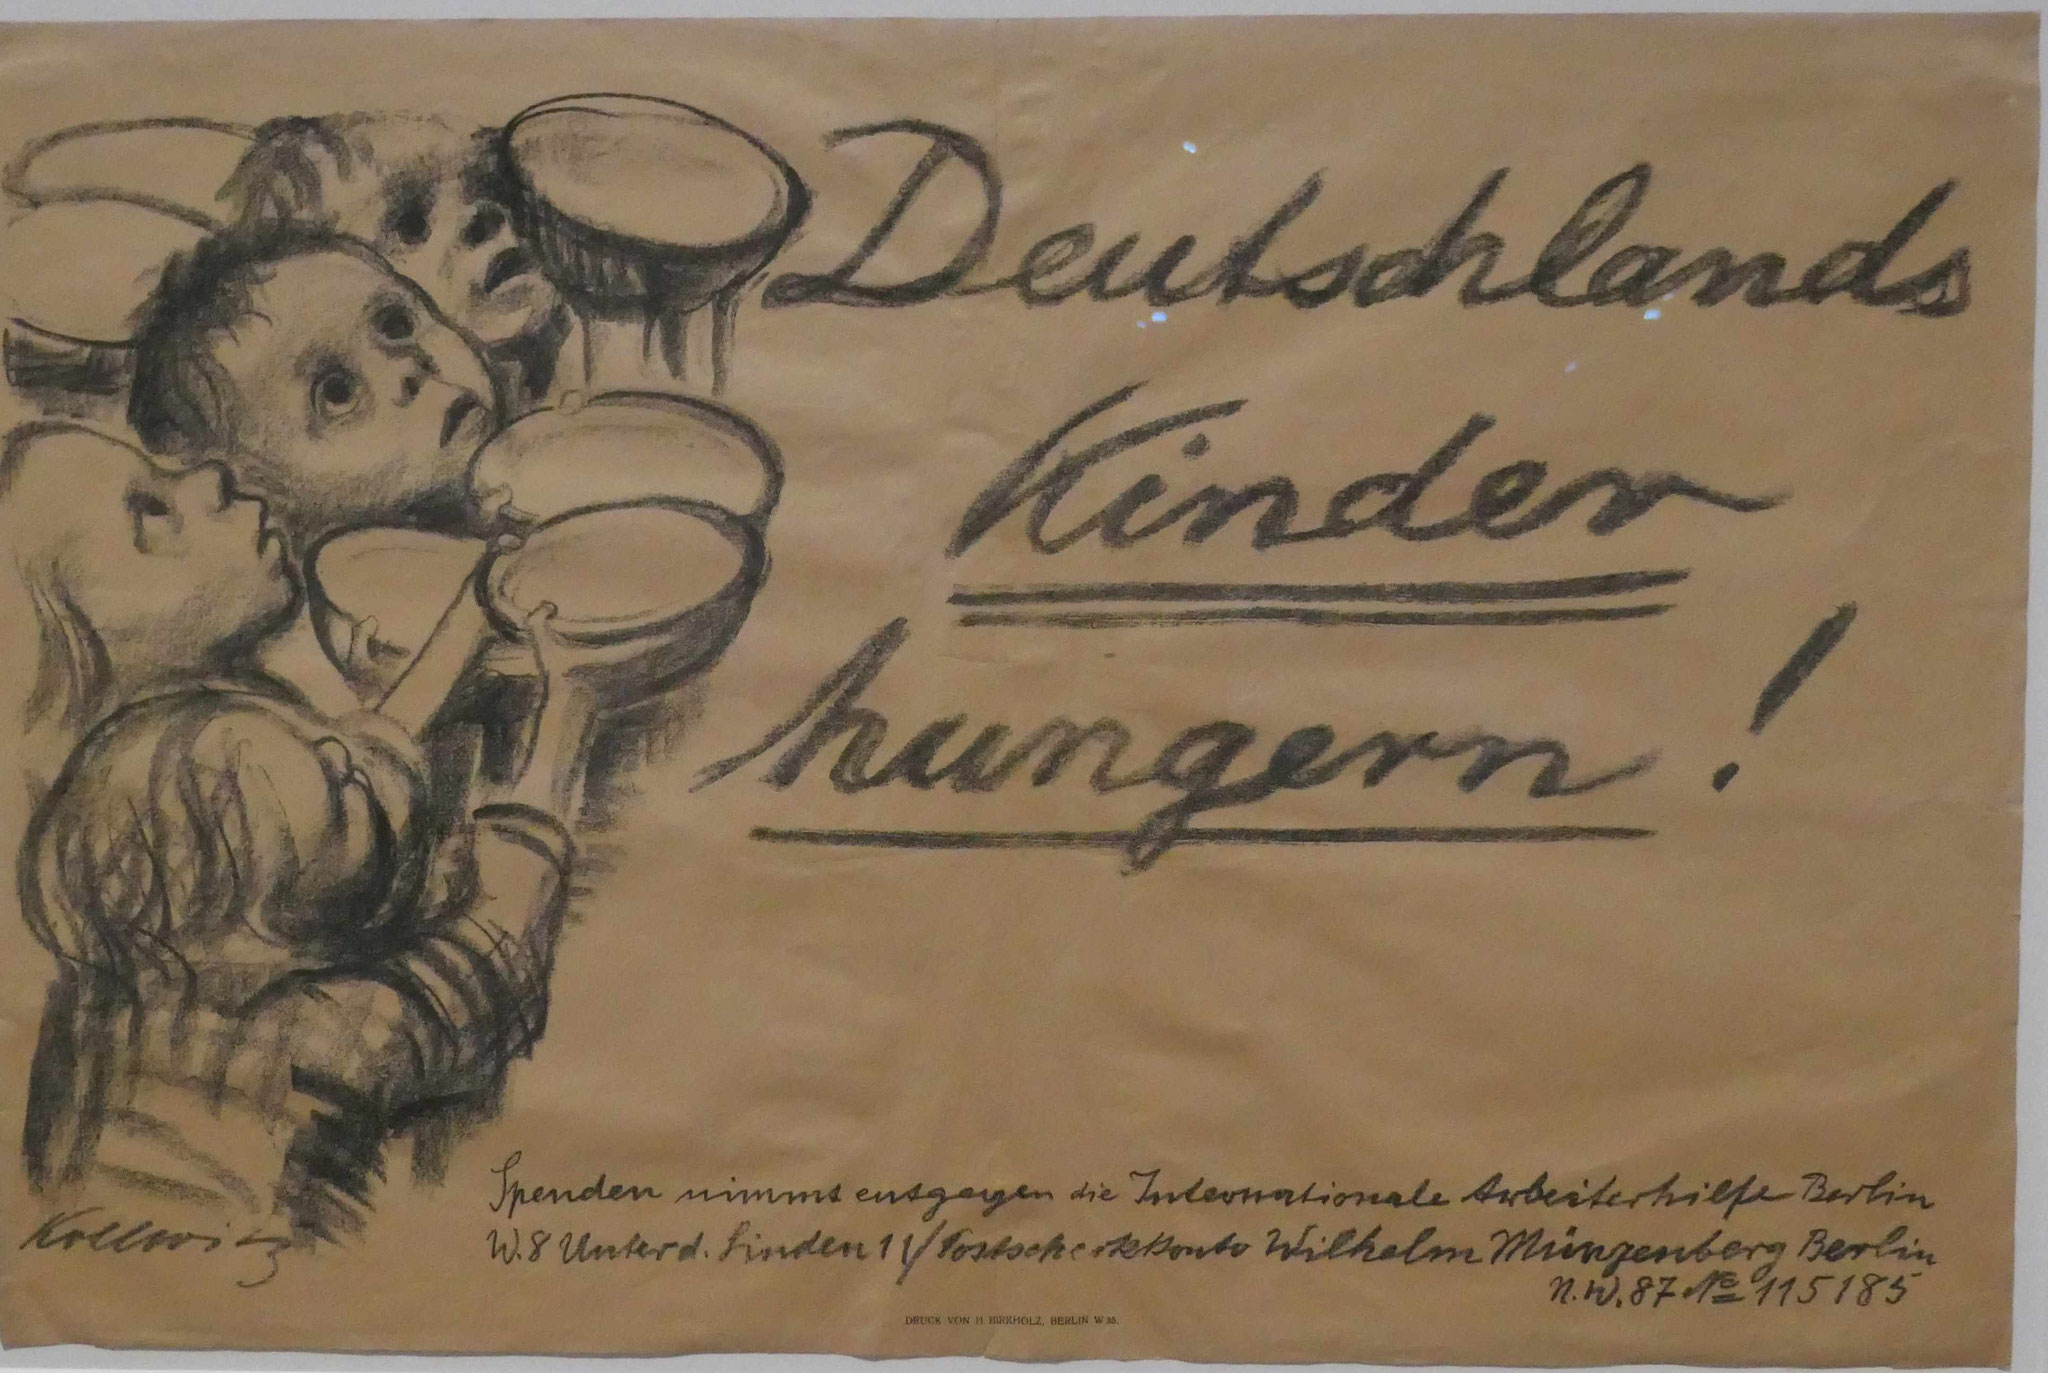 Deutschlands
Kinder
hungern!
Spenden nimmt entgegen die Internationale Arbeiterhilfe Berlin
W.8 Unter d. Linden 11/Postscheckkonto Wilhelm Münzenberg Berlin
N.W.87 No 115185
Kollwitz
DRUCK VON H. BIRKHOLZ, BERLIN W 35.